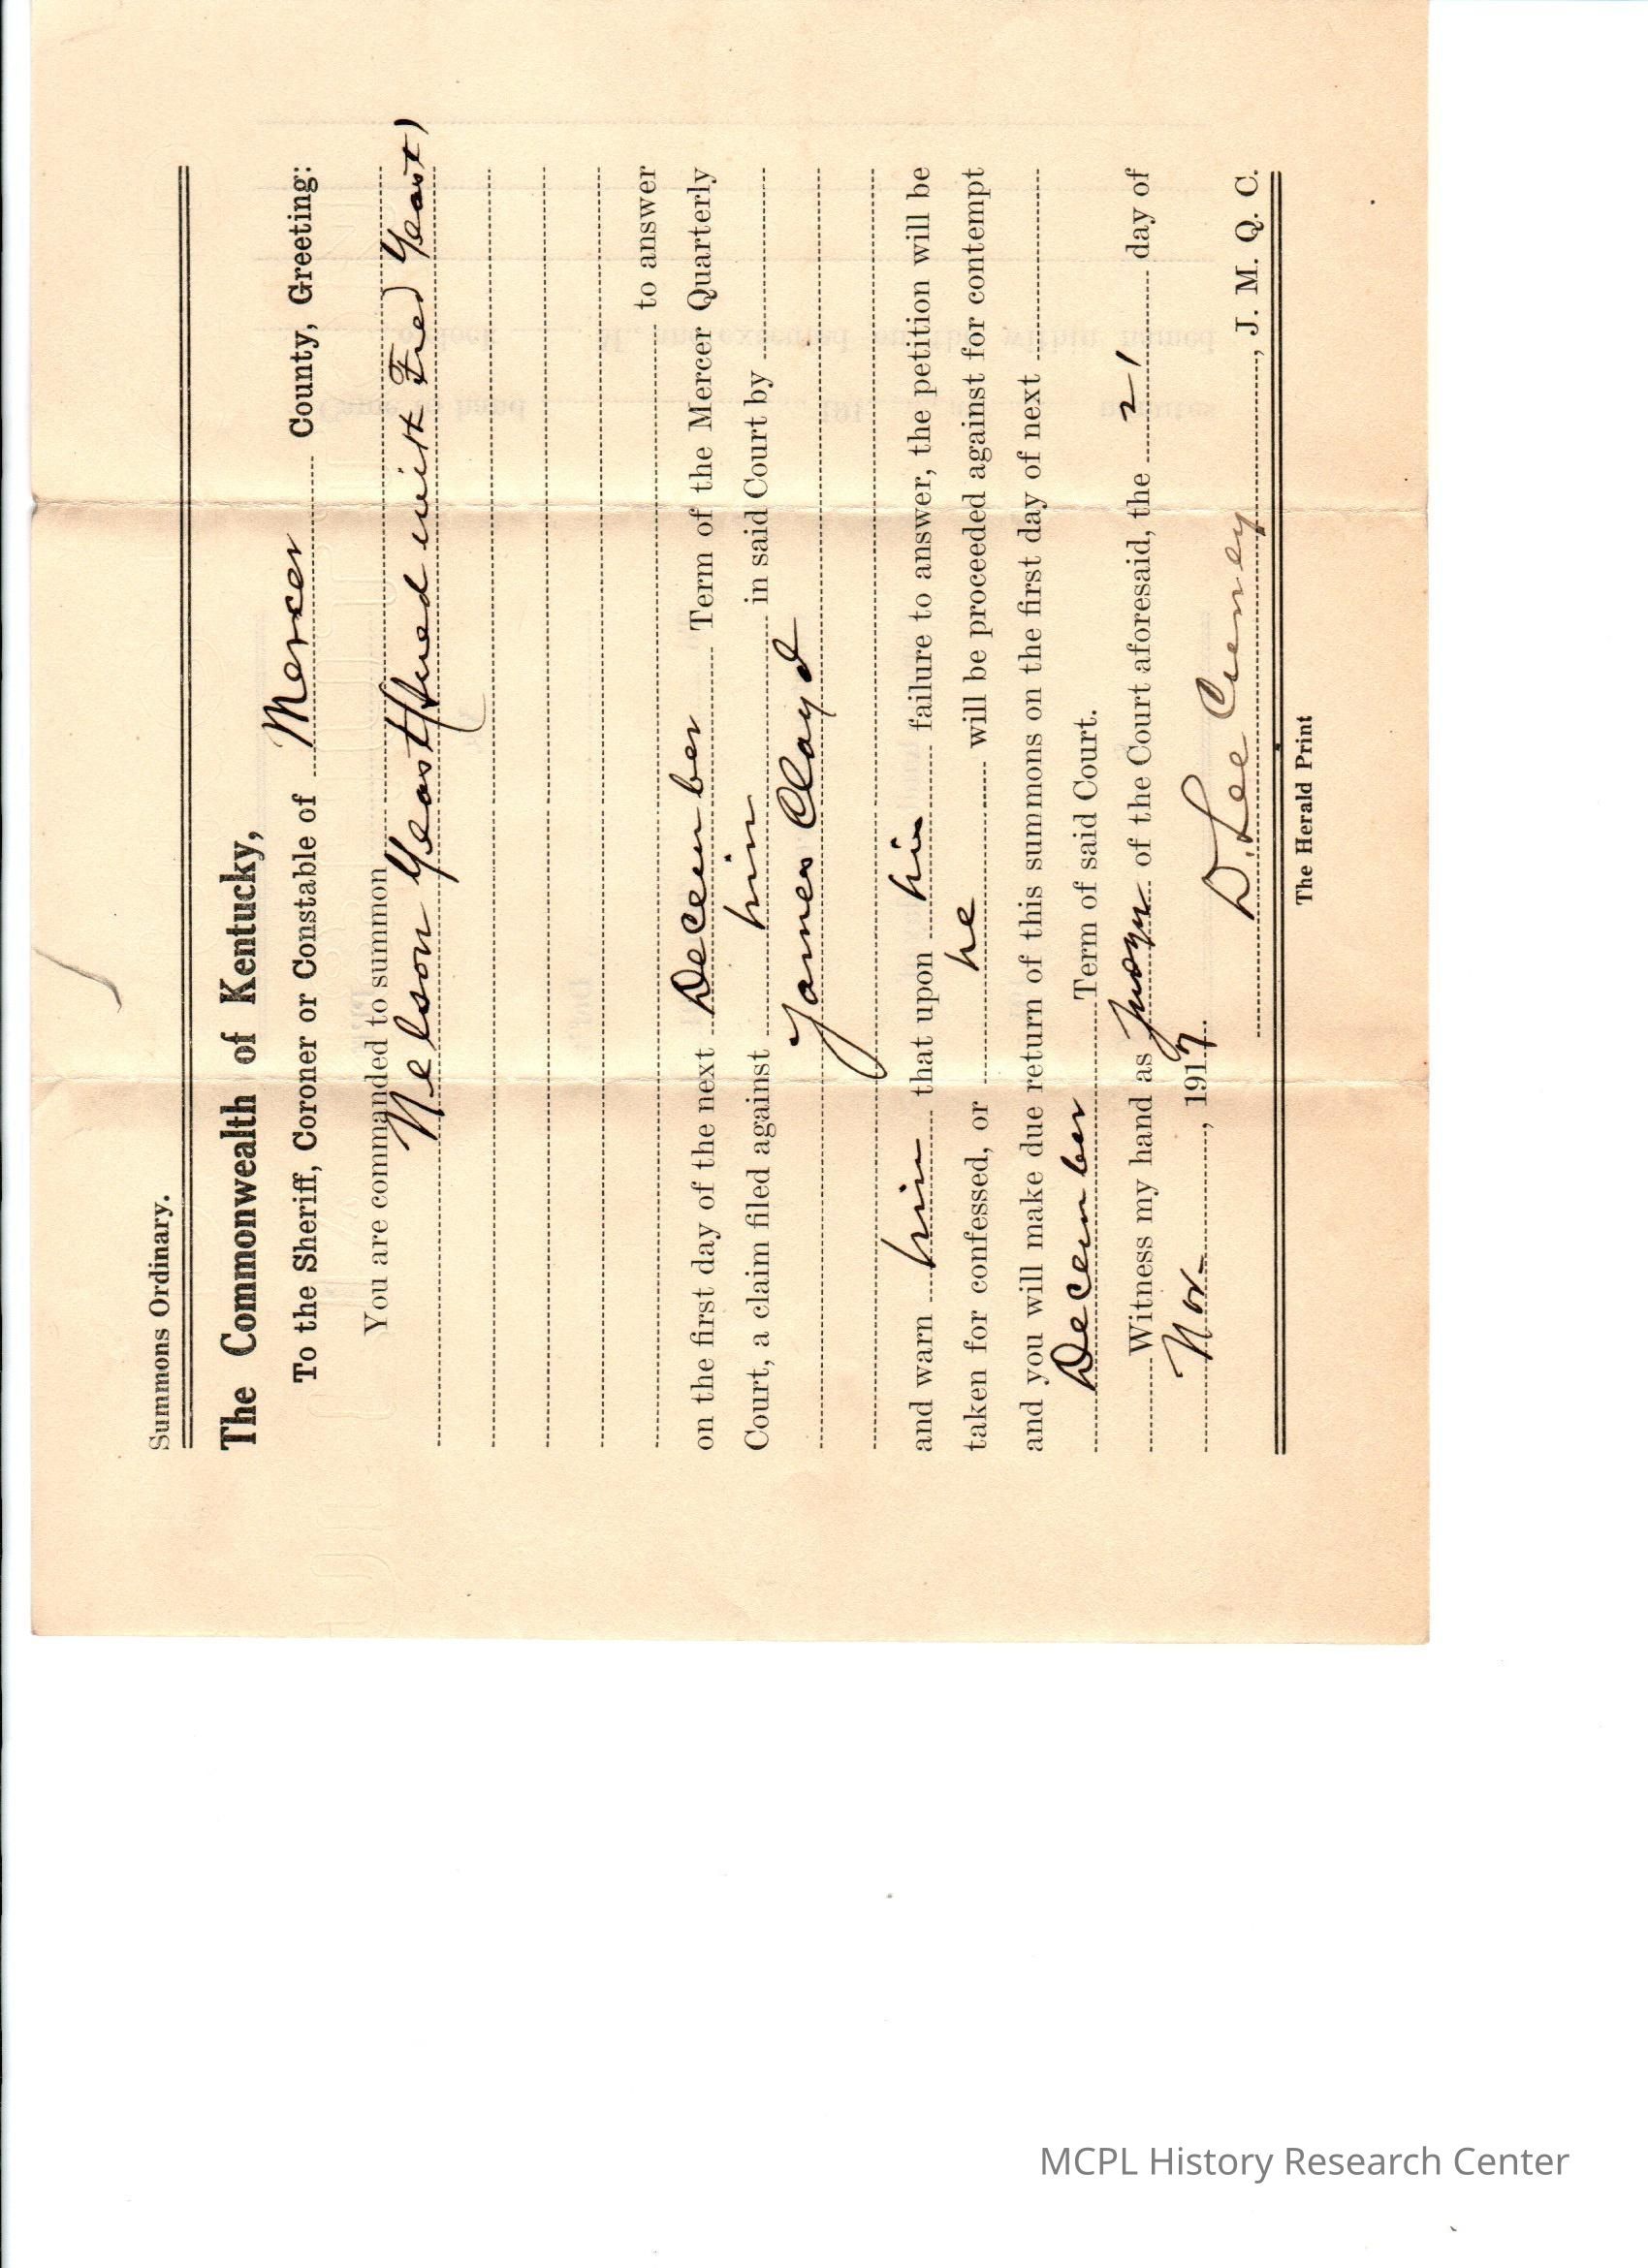 Summons Ordinary.
The Commonwealth of Kentucky,
To the Sheriff, Coroner or Constable of Mercer County, Greeting:
You are commanded to summon
Nelson Yeast (hired with Fred Yeast)
to answer
on the first day of the next December Term of the Mercer Quarterly
Court, a claim filed against him in said Court by
James Clayd
and warn him that upon his failure to answer, the petition will be
taken for confessed, or he will be proceeded against for contempt
and you will make due return of this summons on the first day of next
December Term of said Court.
Witness my hand as Judge of the Court aforesaid, the 21 day of
Nov- , 1917.
D. Lee Curney , J. M. Q. C.
The Herald Print
MCPL History Research Center